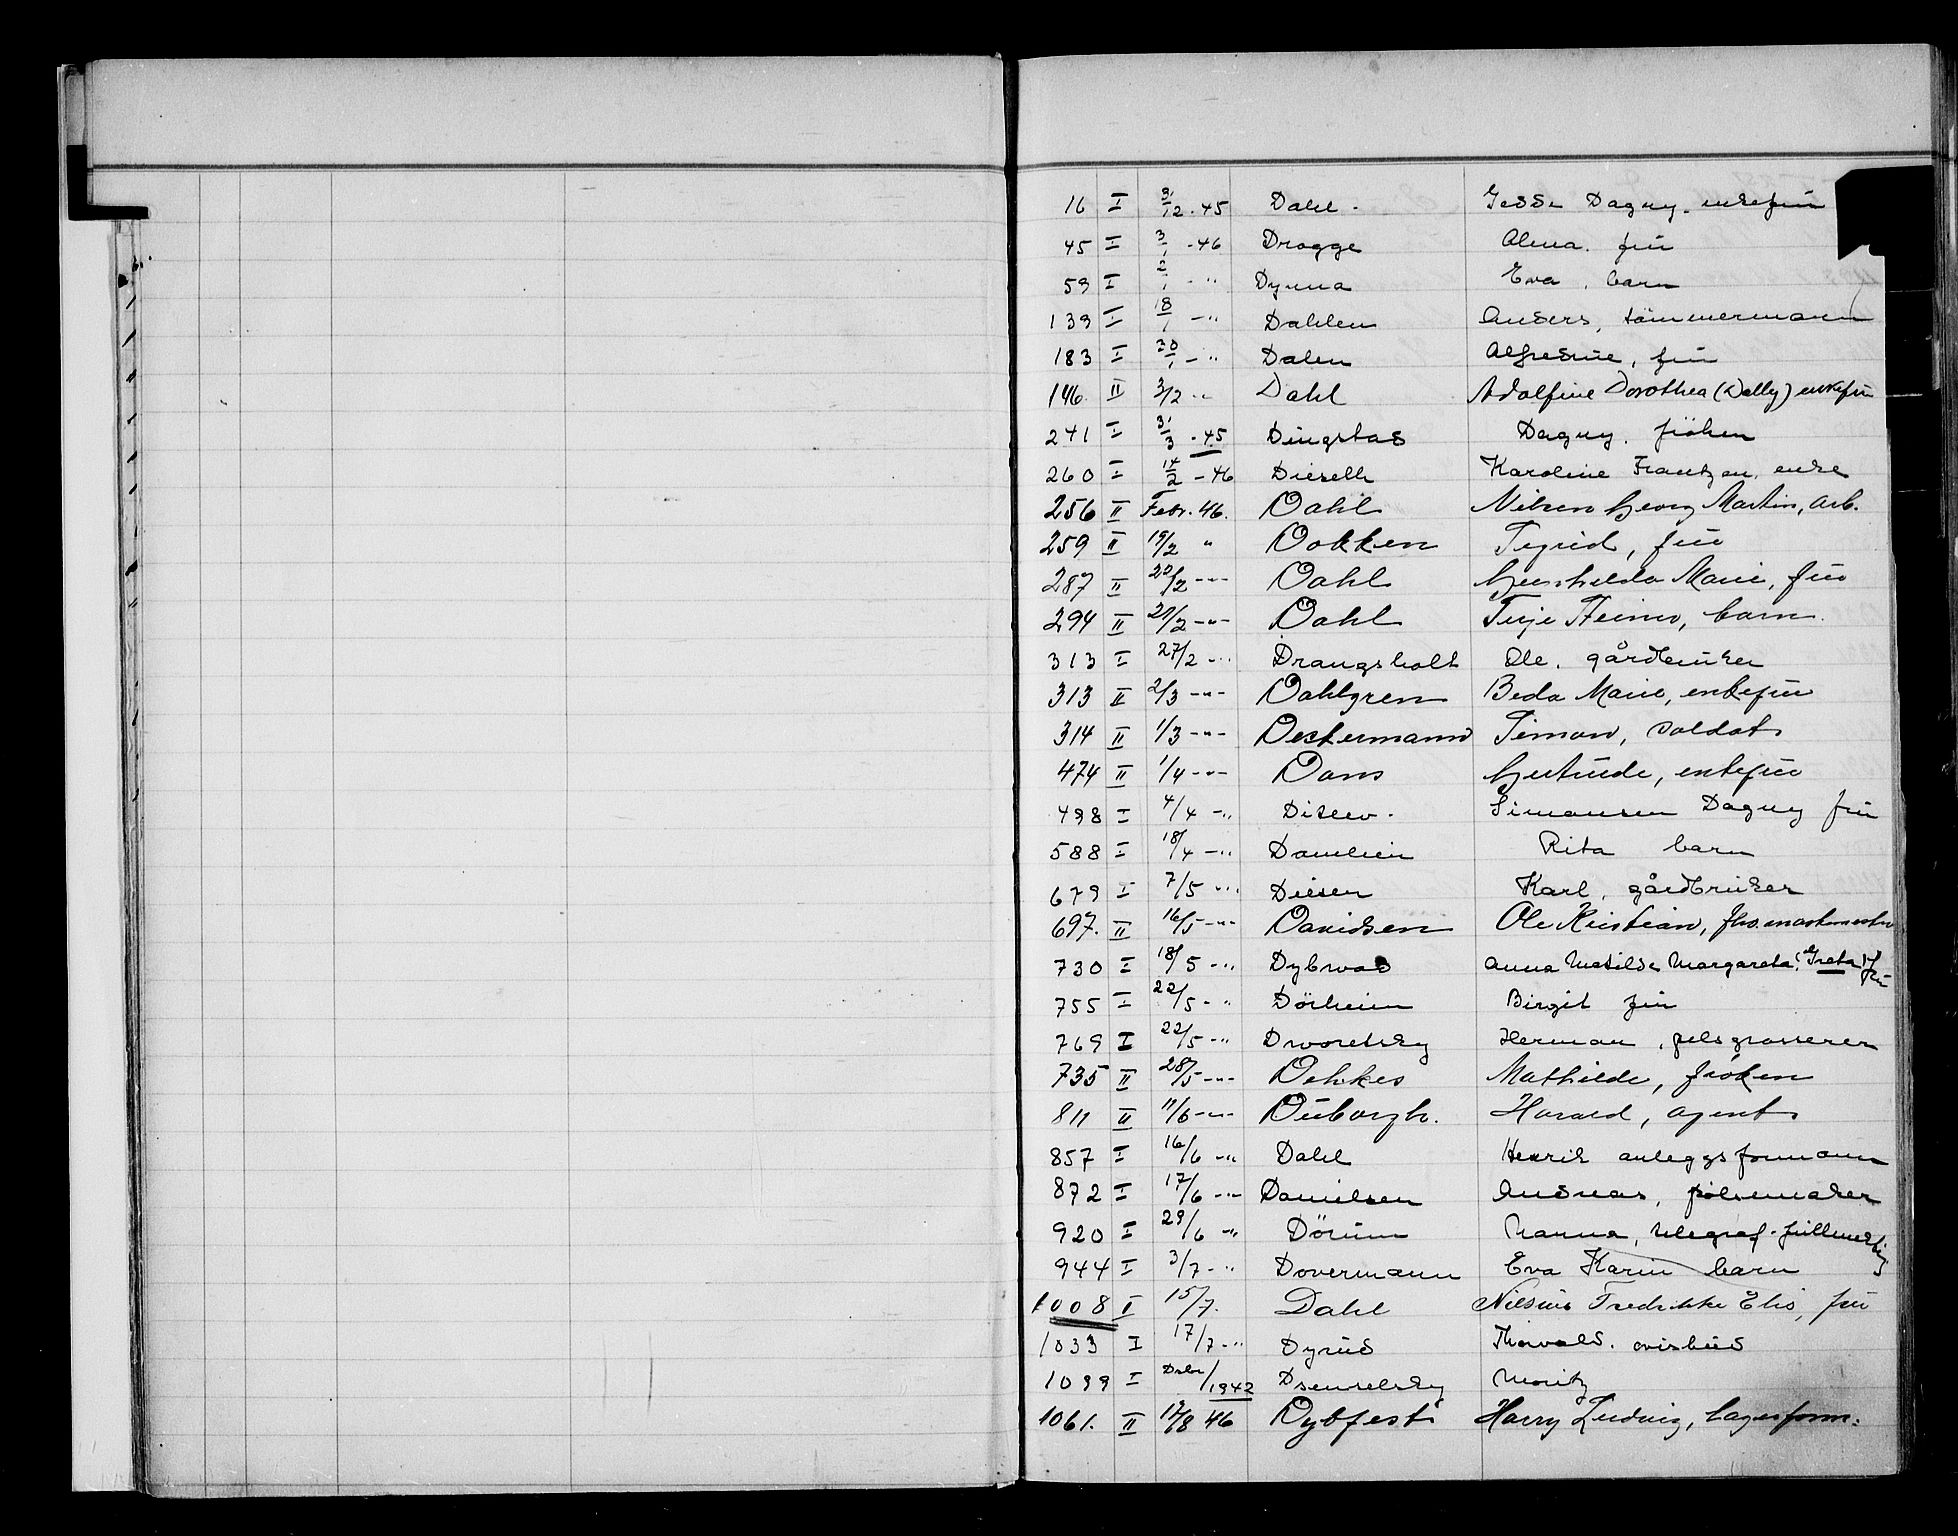 16 I 3/12 - 45 Dahl - Dagny. enkefru
45 I 3/1 - 46 Drogge Alma. fru
59 I 2/1 - " Dynna Eva, barn
139 I 18/1 - " Dahlen Anders, tömmermann
183 I 30/1 - " Dalen Alfredine, fru
146. II 3/2 " Dahl Adolfine Dorothea (Dolly) enkefru
241 I 31/3 - 45 Dingstad Dagny. fröken
260 I 14/2 - 46 Dieseth Karoline Frantzen, enke
256 II Febr. 46. Dahl Nilsen Georg Martin, arb.
259 II 19/2 " Dokken fru
287 II 22/2 - " - Dahl Marie, fru
294 II 21/2 - " - Dahl Terje Heimer, barn.
313 I 27/2 - " Drangsholt Ole. gårdbruker
313 II 2/3 - " - Dahlgren Beda Marie, enkefru
314 II 1/3 - " - Destermann Simon, soldat
474 II 1/4 - " - Dans Gertrude, enkefru
498 I 4/4 - " Ditlev - Simonsen Dagny fru
588 I 18/4 - " Damlien Rita barn
679 I 7/5 - " Diesen Karl, gårdbruker
697. II 16/5 - " - Davidsen Ole Kristian, fhv. maskinmester
730 I 18/5 - " Dybwad Anna Matilde Margareta ("Greta") fru
755 I 22/5 - " Dörheim Birgit fru
769 I 22/5 - " Dworetsky Herman, pelsgrosserer
735 II 28/5 - " - Dehkes Mathilde, fröken
811 II 11/6 - " - Duborgh. Harald, agent
857 I 16/6 - " Dahl Henrik anleggsformann
872 I 17/6 - " - Danielsen Andreas, pölsemaker
920 I 29/6 - " Dörum Nanna, telegraf-fullmektig
944 I 3/7 - " Dovermann Eva Karin barn
1008 I 15/7. Dahl Fredrikke Elis, fru
1033 I 17/7 - " Dyrud Thorvald. avisbud
1099 I Dsbr/1942 Moritz
1061. II 12/8 46 Dybfest Harry Ludvig, lagerform.